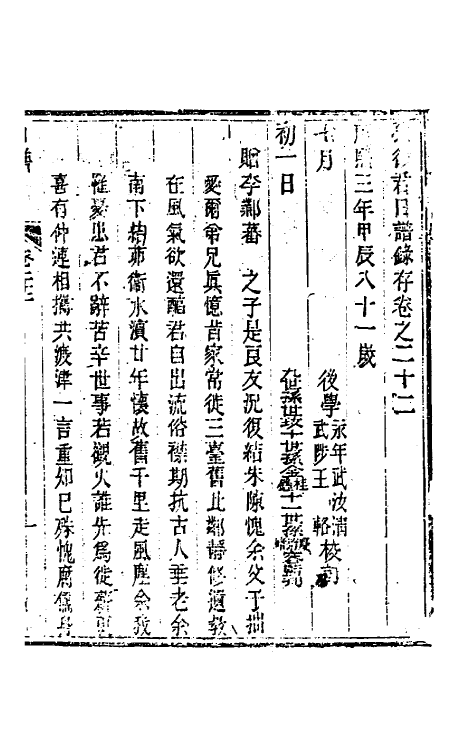 徵君日譜錄存卷之二十二
後學永年武汝清
武陟王輅校刊
康熙三年甲辰八十一歲
七月
初一日
贈李鄴蕃 之子是良友況復結朱陳愧余父子拙
愛爾弟兄眞憶昔家常徙三臺舊此鄰靜修遺敎
在風氣欲還醕君自出流俗襟期抗古人垂老余
南下結茆衛水濱廿年懷故舊千里走風塵余我
罹憂患君不辭苦辛世事若觀火誰先爲徙薪更
喜有仲連相攜共渡津一言重知已殊愧腐儒身
日譜
卷二十二
一